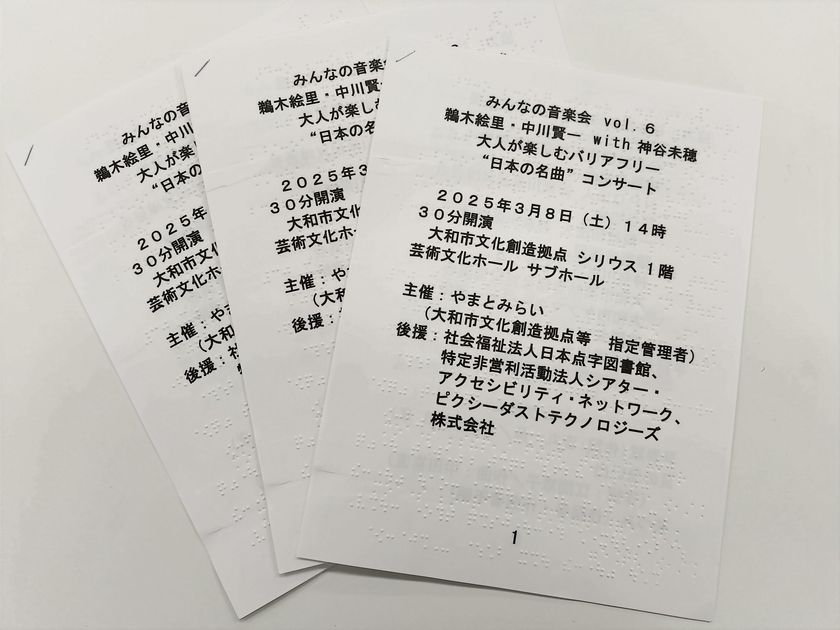 みんなの音楽会 vol.６
鵜木絵里・中川賢一 with 神谷未穂
大人が楽しむバリアフリー
“日本の名曲” コンサート
２０２５年３月８日（土）１４時
３０分開演
大和市文化創造拠点 シリウス １階
芸術文化ホール サブホール
主催：やまとみらい
（大和市文化創造拠点等　指定管理者）
後援：社会福祉法人日本点字図書館、
特定非営利活動法人シアター・
アクセシビリティ・ネットワーク、
ピクシーダストテクノロジーズ
株式会社
1
みんなの音楽
鵜木絵里・中川賢一
大人が楽し
“日本の名
２０２５年３
３０分開演
大和市文化
芸術文化ホー
主催：や
（大和
後援：
みんなの音
鵜木絵里・中川
大人が楽
“日本の
２０２５年
３０分開演
大和市文
芸術文化ホ
主催：や
（大和
後援：社